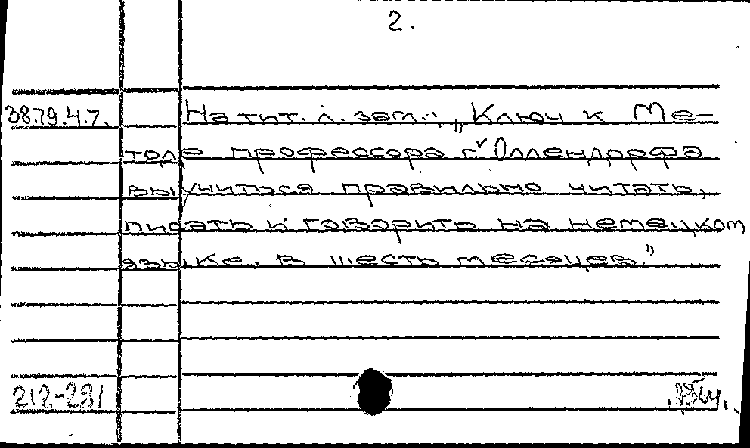 2.
38.79.4.7. На тит. л. загл.: „Ключ к Ме-
тоде профессора г. Оллендорфа
выучиться правильно читать,
писать и говорить на немецком
языке. в шесть месяцев."
212-281